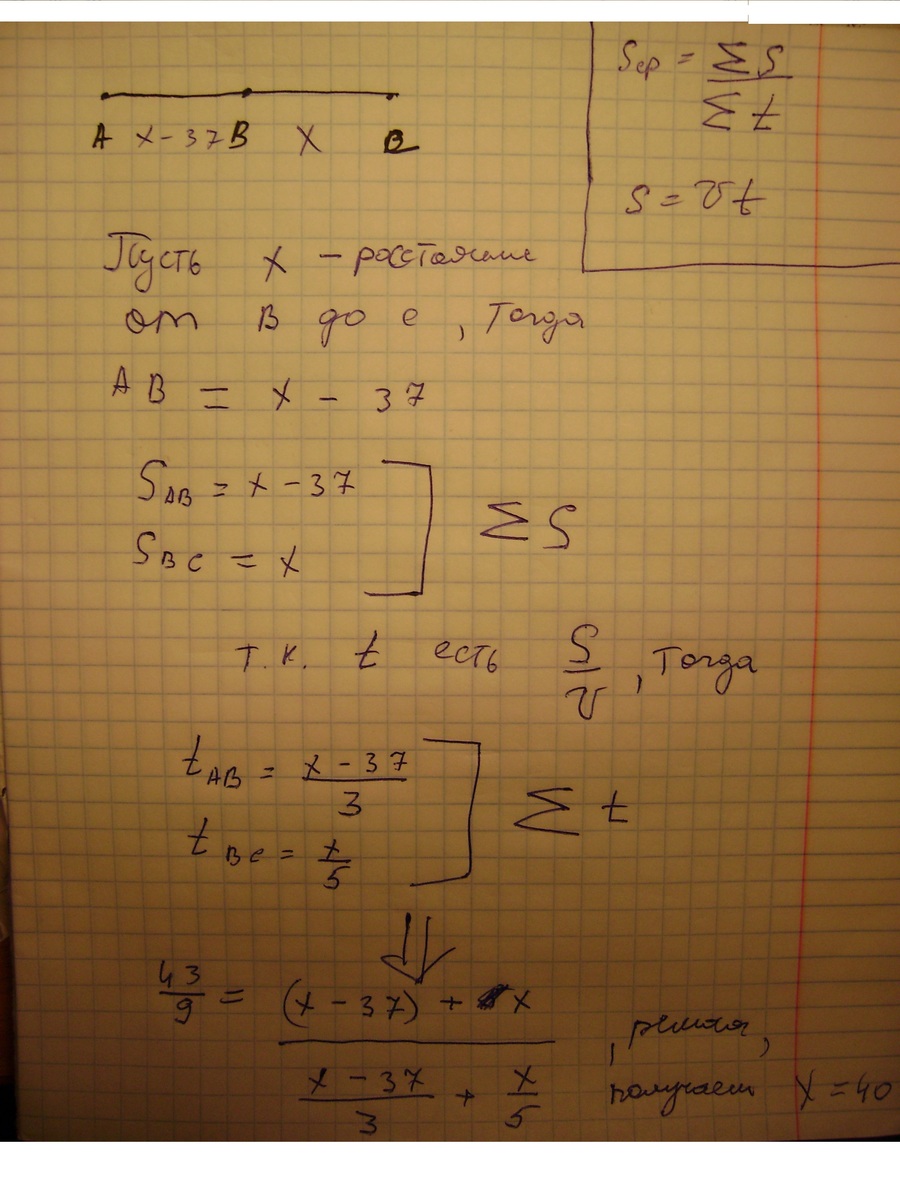 A x-37 B x B
Sср = ΣS / Σt
S = vt
Пусть x - расстояние
от B до C, тогда
AB = x - 37
S AB = x - 37
S BC = x
ΣS
т.к. t есть S/v, тогда
t AB = (x - 37)/3
t BC = x/5
Σt
⇓
43/9 = ((x - 37) + x) / ((x - 37)/3 + x/5)
, решая,
получаем x = 40